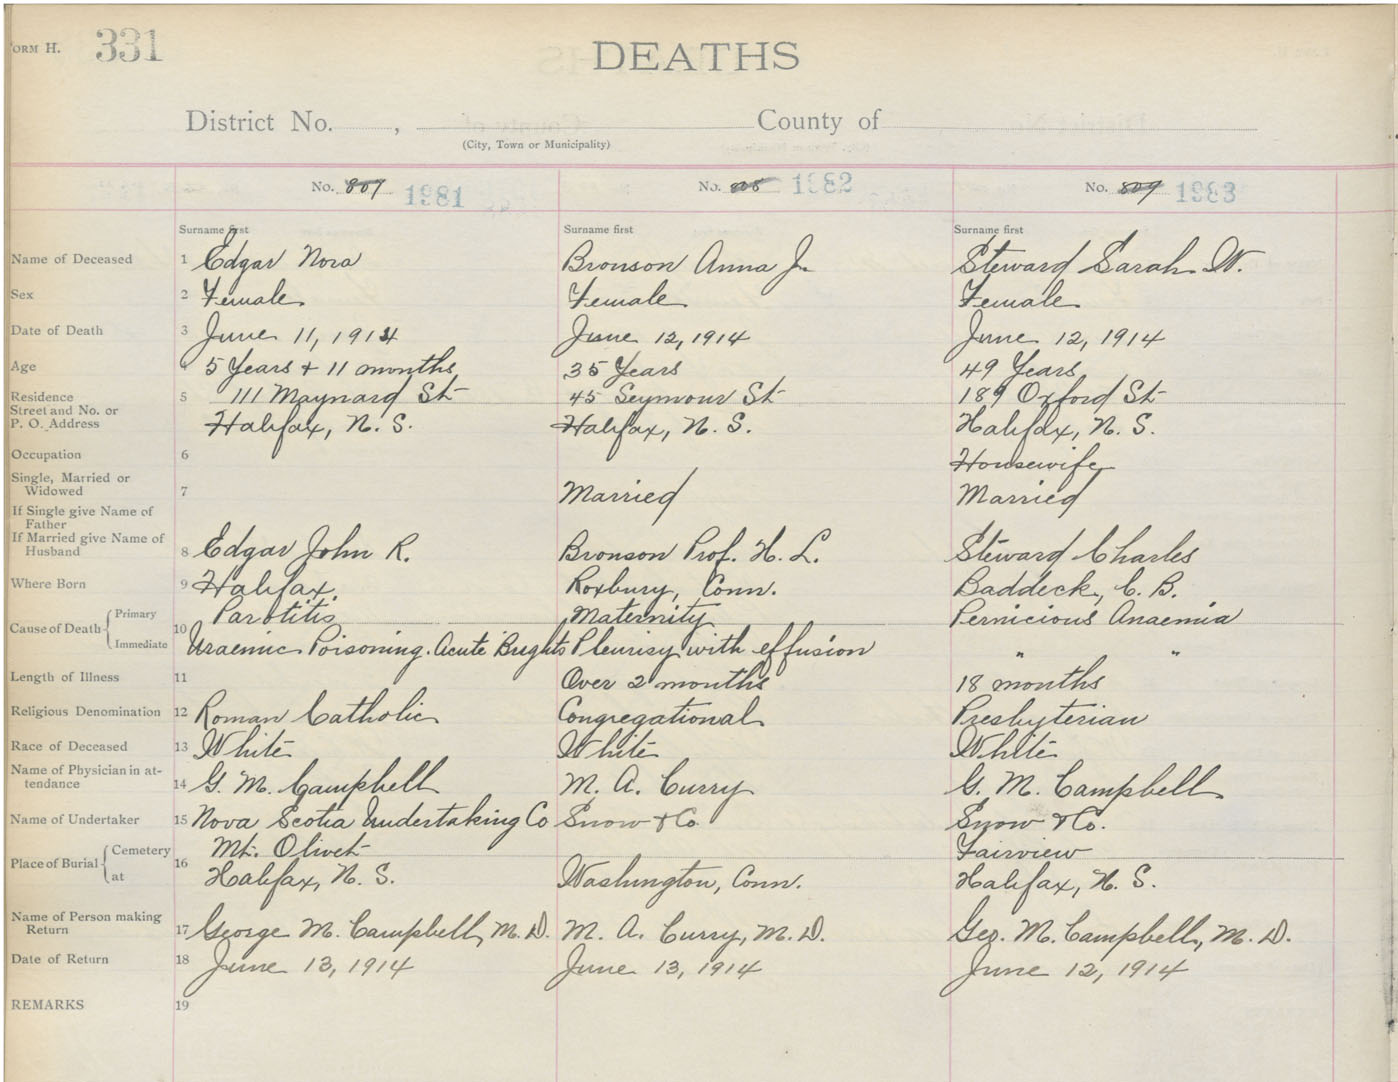 ORM H. 331
DEATHS
District No. , County of
(City, Town or Municipality)
No. 807 1981 No. 808 1982 No. 809 1983
Surname first Surname first Surname first
Name of Deceased 1 Edgar Nora Bronson Anna J. Steward Sarah W.
Sex 2 Female Female Female
Date of Death 3 June 11, 1914 June 12, 1914 June 12, 1914
Age 4 5 Years + 11 months 35 Years 49 Years
Residence 5 111 Maynard St 45 Seymour St 189 Oxford St
Street and No. or
P. O. Address Halifax, N. S. Halifax, N. S. Halifax, N. S.
Occupation 6 Housewife
Single, Married or
Widowed 7 Married Married
If Single give Name of
Father
If Married give Name of
Husband 8 Edgar John R. Bronson Prof. H. L. Steward Charles
Where Born 9 Halifax. Roxbury, Conn. Baddeck, C. B.
Cause of Death 10 Primary Parotitis Maternity Pernicious Anaemia
Immediate Uraemic Poisoning. Acute Brights Pleurisy with effusion " "
Length of Illness 11 Over 2 months 18 months
Religious Denomination 12 Roman Catholic Congregational Presbyterian
Race of Deceased 13 White White White
Name of Physician in at-
tendance 14 G. M. Campbell M. A. Curry G. M. Campbell
Name of Undertaker 15 Nova Scotia Undertaking Co Snow & Co Snow & Co.
Place of Burial 16 Cemetery Mt. Olivet Fairview
at Halifax, N. S. Washington, Conn. Halifax, N. S.
Name of Person making
Return 17 George M. Campbell, M. D. M. A. Curry, M. D. Geo. M. Campbell, M. D.
Date of Return 18 June 13, 1914 June 13, 1914 June 12, 1914
REMARKS 19